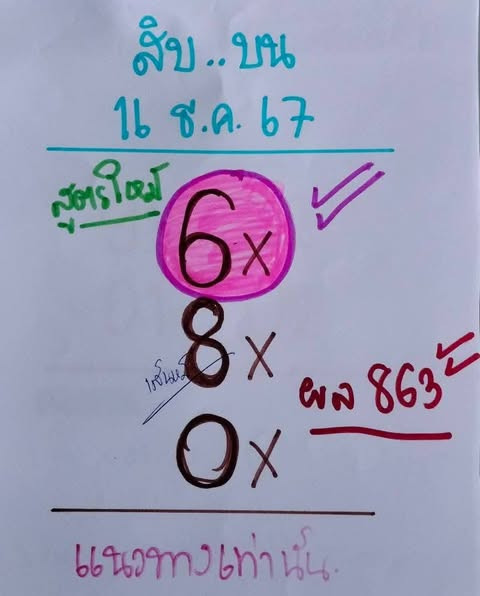 สิบ..บน
16 ธ.ค. 67
สูตรใหม่
6x
8x
ผล 863
0x
แนวทางเท่านั้น.